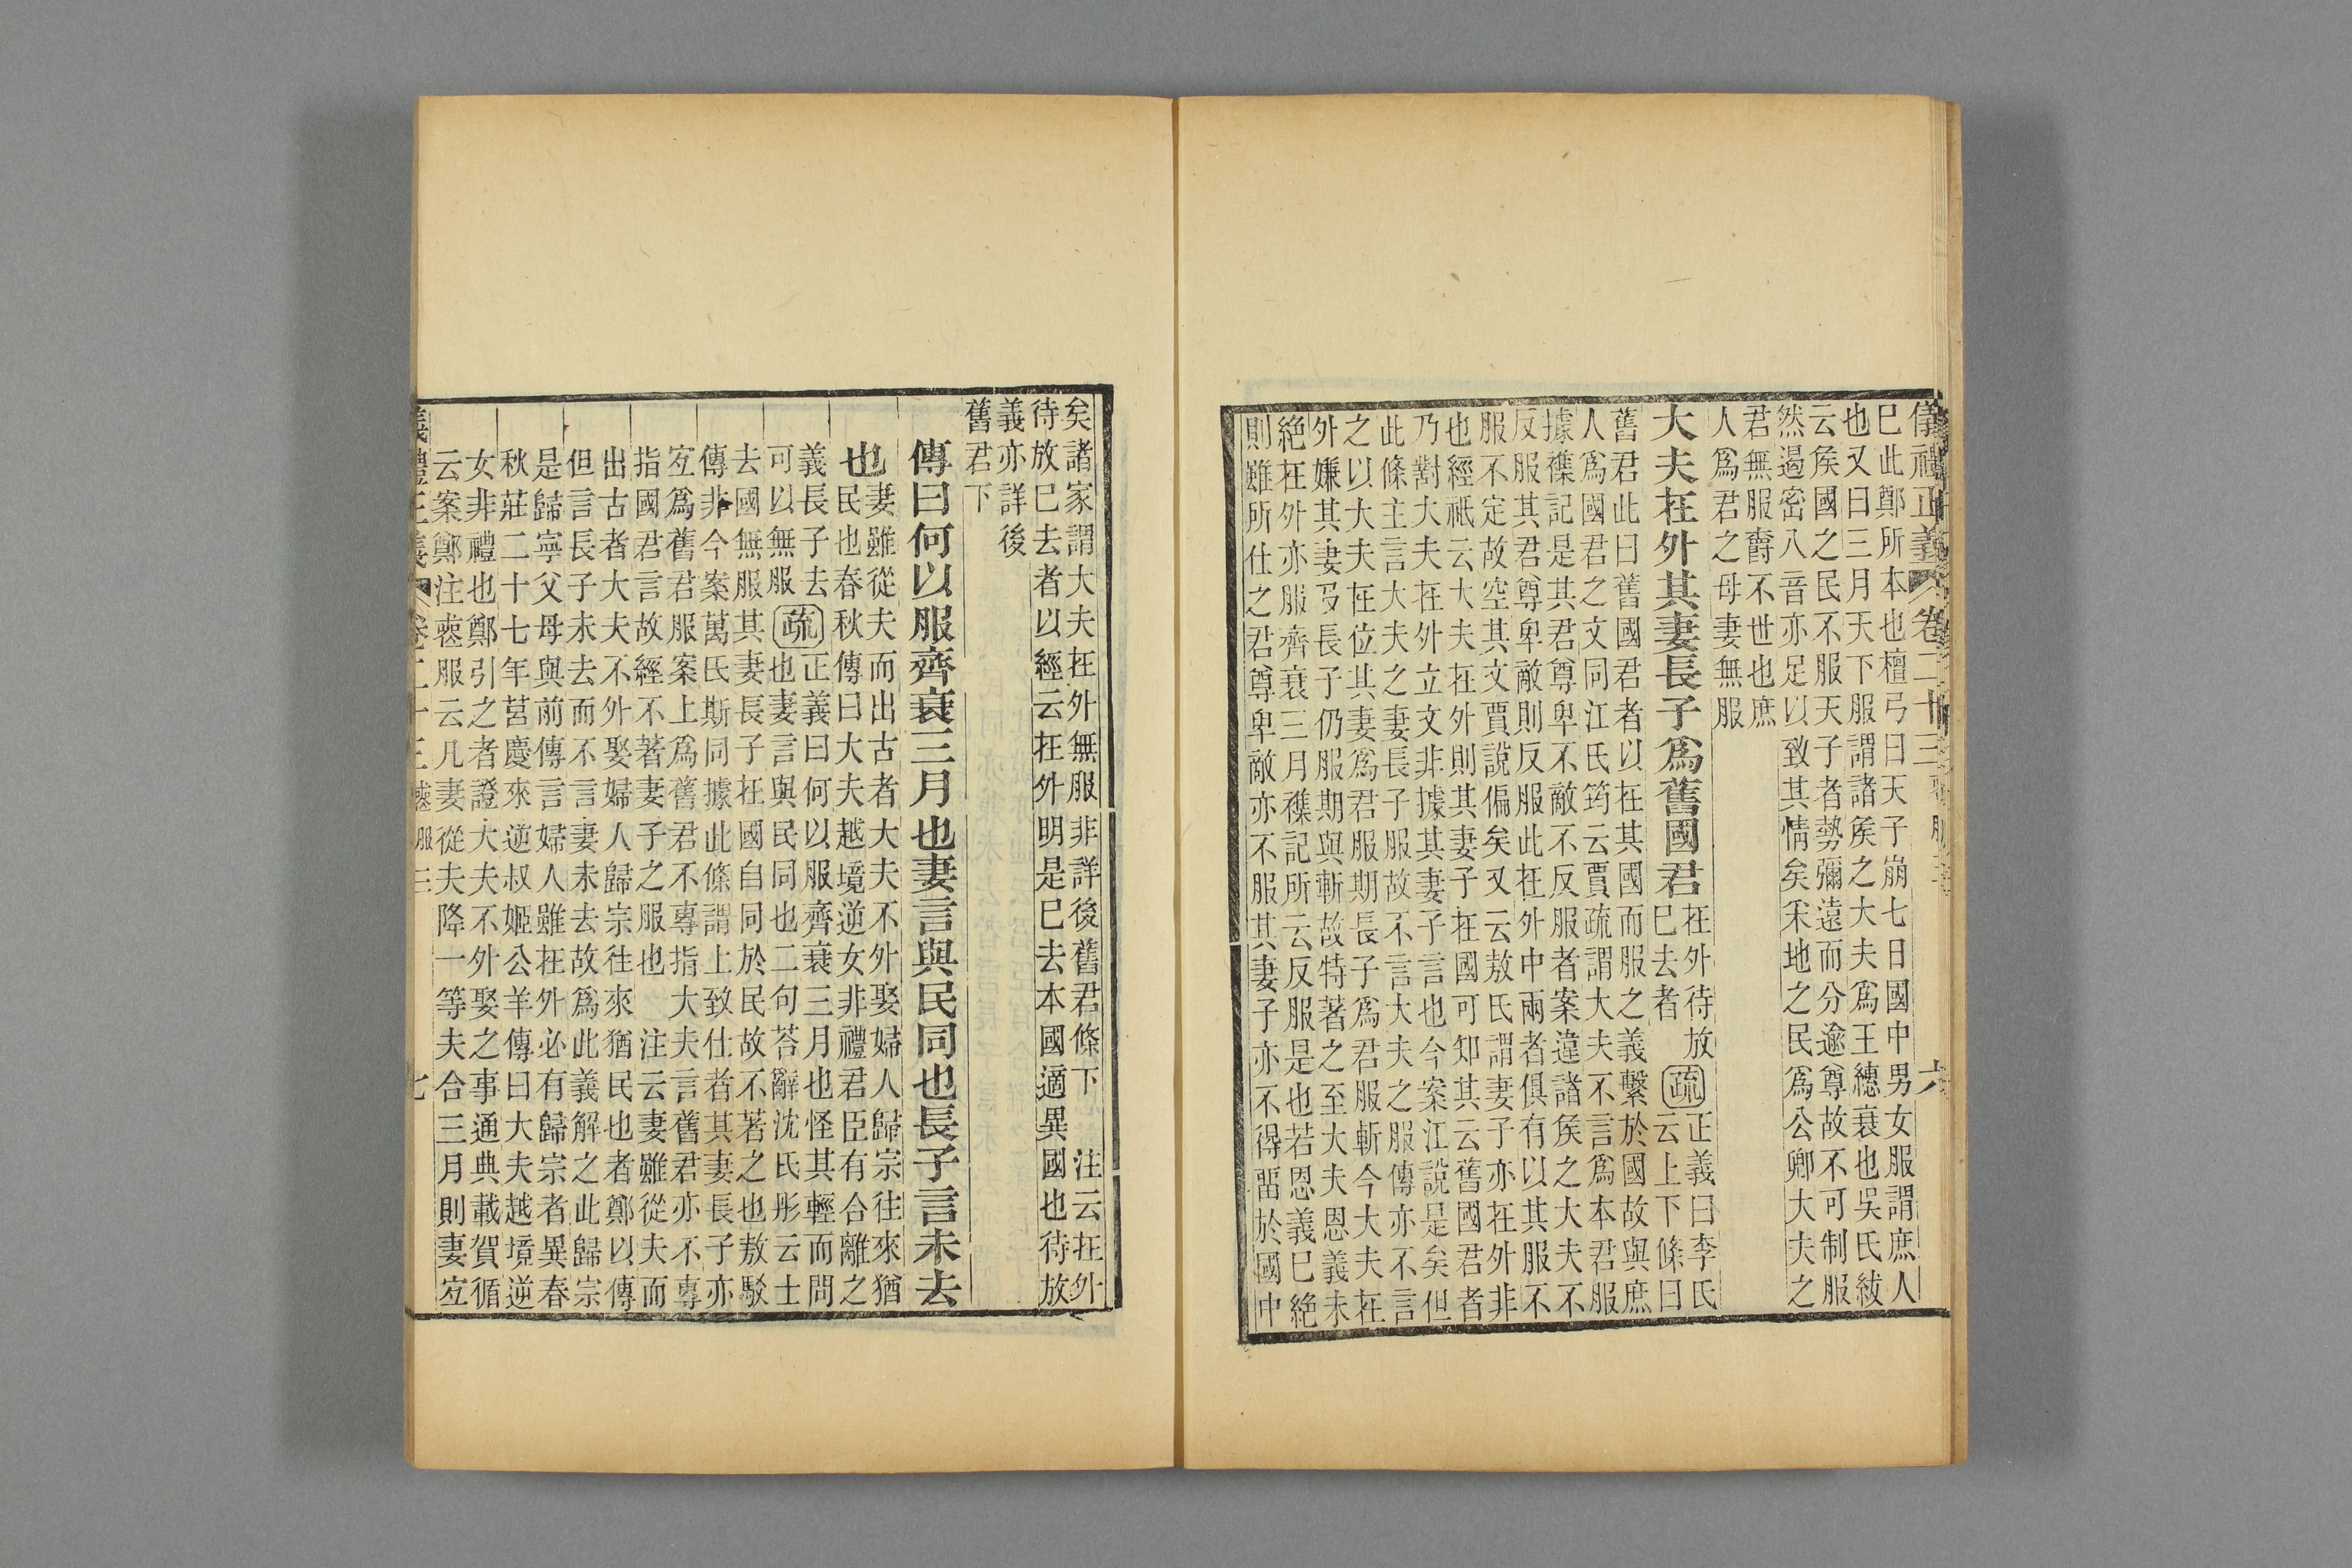 儀禮正義 卷二十三 喪服三 六
巳此鄭所本也檀弓曰天子崩七日國中男女服謂庶人
也又曰三月天下服謂諸矦之大夫爲王繐衰也吳氏紱
云矦國之民不服天子者勢彌遠而分逾尊故不可制服
然遏密八音亦足以致其情矣采地之民爲公卿大夫之
君無服�
人爲君之母妻無服
大夫在外其妻長子爲舊國君
在外待放
巳去者
疏
正義曰李氏
云上下條曰
舊君此曰舊國君者以在其國而服之義繫於國故與庶
人爲國君之文同江氏筠云賈疏謂大夫不言爲本君服
據襍記是其君尊卑不敵不反服者案違諸矦之大夫不
反服其君尊卑敵則反服此在外中兩者俱有以其服不
服不定故空其文賈說偏矣又云敖氏謂妻子亦在外非
也經祇云大夫在外則其妻子在國可知其云舊國君者
乃對大夫在外立文非據其妻子言也今案江說是矣但
此條主言大夫之妻長子服故不言大夫之服傳亦不言
之以大夫在位其妻爲君服期長子爲君服斬今大夫在
外嫌其妻及長子仍服期與斬故特著之至大夫恩義未
絕在外亦服齊衰三月襍記所云反服是也若恩義巳絕
則雖所仕之君尊卑敵亦不服其妻子亦不得畱於國中
矣諸家謂大夫在外無服非詳後舊君條下 注云在外
待放巳去者以經云在外明是巳去本國適異國也待放
義亦詳後
舊君下
傳曰何以服齊衰三月也妻言與民同也長子言未去
也
妻雖從夫而出古者大夫不外娶婦人歸宗往來猶
民也春秋傳曰大夫越境逆女非禮君臣有合離之
義長子去
可以無服
疏
正義曰何以服齊衰三月也怪其輕而問
也妻言與民同也二句荅辭沈氏彤云士
去國無服其妻長子在國自同於民故不著之也敖駁
傳非今案萬氏斯同據此條謂上致仕者其妻長子亦
宐爲舊君服案上爲舊君不專指大夫言舊君亦不專
指國君言故經不著妻子之服也 注云妻雖從夫而
出古者大夫不外娶婦人歸宗往來猶民也者鄭以傳
但言長子未去而不言妻未去故爲此義解之此歸宗
是歸寧父母與前傳言婦人雖在外必有歸宗者異春
秋莊二十七年莒慶來逆叔姬公羊傳曰大夫越境逆
女非禮也鄭引之者證大夫不外娶之事通典載賀循
云案鄭注喪服云凡妻從夫降一等夫合三月則妻宐
儀禮正義 卷二十三 喪服三 七